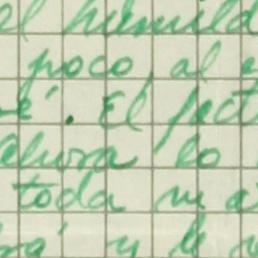 el humild
poco, al
é. El fact
ahora lo
toda m
rá y le